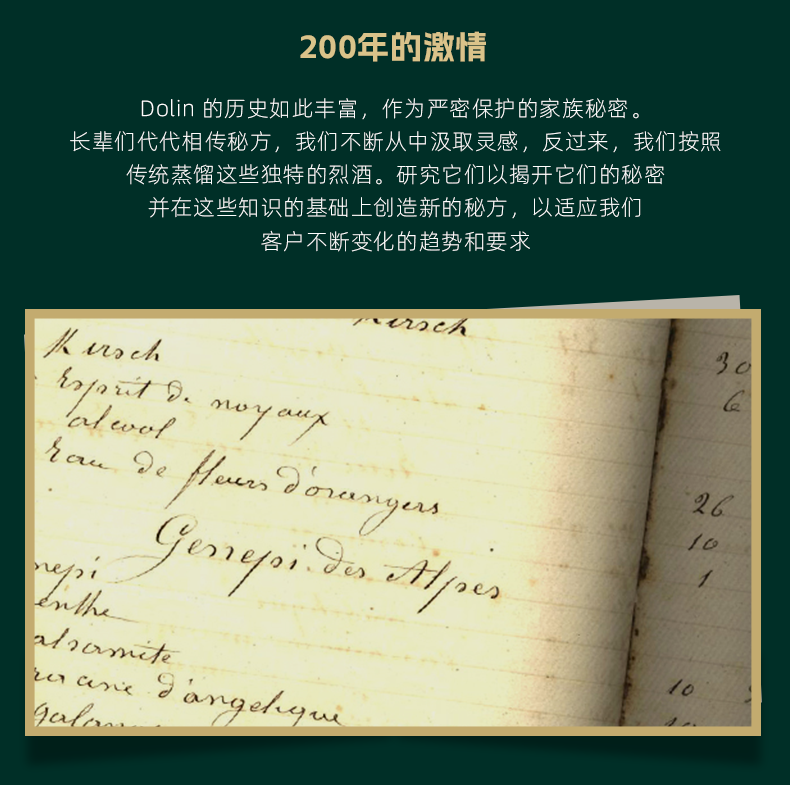 200年的激情
Dolin 的历史如此丰富，作为严密保护的家族秘密。
长辈们代代相传秘方，我们不断从中汲取灵感，反过来，我们按照
传统蒸馏这些独特的烈酒。研究它们以揭开它们的秘密
并在这些知识的基础上创造新的秘方，以适应我们
客户不断变化的趋势和要求
Kirsch
Kirsch
Esprit de noyaux
alcool
Eau de fleurs d'orangers
Genepi des Alpes
nepi
enthe
alsamite
cine d'angelique
galan
30
6
26
10
1
10
10